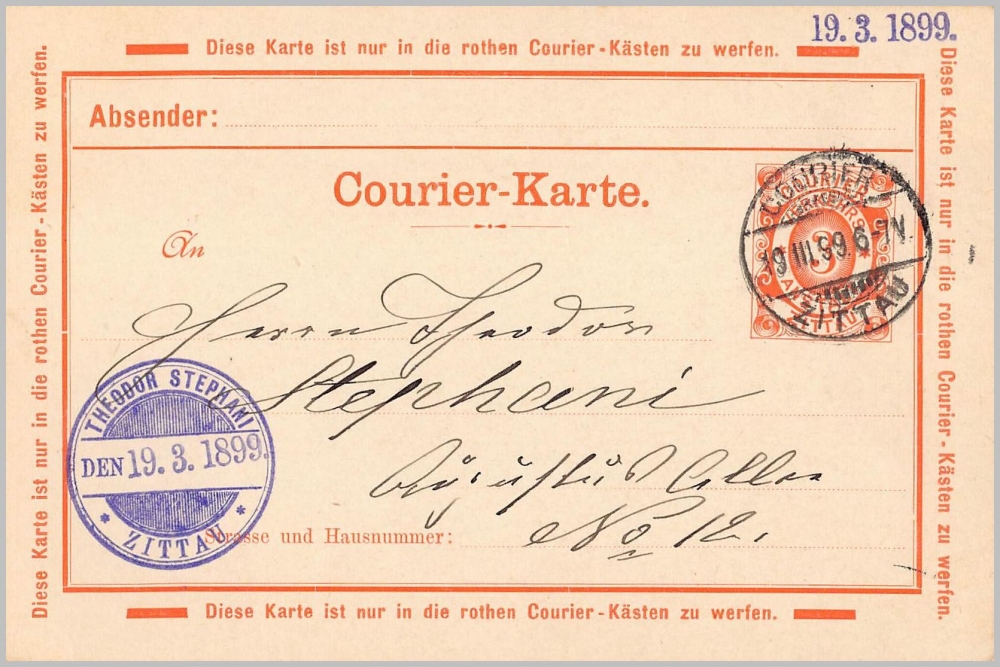 19. 3. 1899.
Diese Karte ist nur in die rothen Courier-Kästen zu werfen.
Diese Karte ist nur in die rothen Courier-Kästen zu werfen.
Diese Karte ist nur in die rothen Courier-Kästen zu werfen.
Absender:
Courier-Karte.
COURIER
VERKEHRS
3
ZITTAU
COURIER
19 III.99. 6-7N.
ZITTAU
An
Herrn Theodor
Stephani
Augustus Allee
No 12.
THEODOR STEPHANI
DEN 19. 3. 1899.
* ZITTAU *
Strasse und Hausnummer:
Diese Karte ist nur in die rothen Courier-Kästen zu werfen.